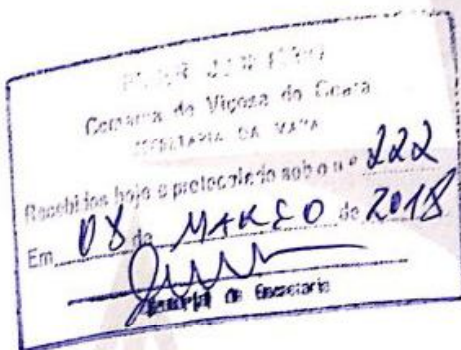 Comarca de Viçosa do Ceará
SECRETARIA DA VARA
Recebidos hoje e protocolado sob o nº 222
Em 08 de MARÇO de 2018
de Secretaria